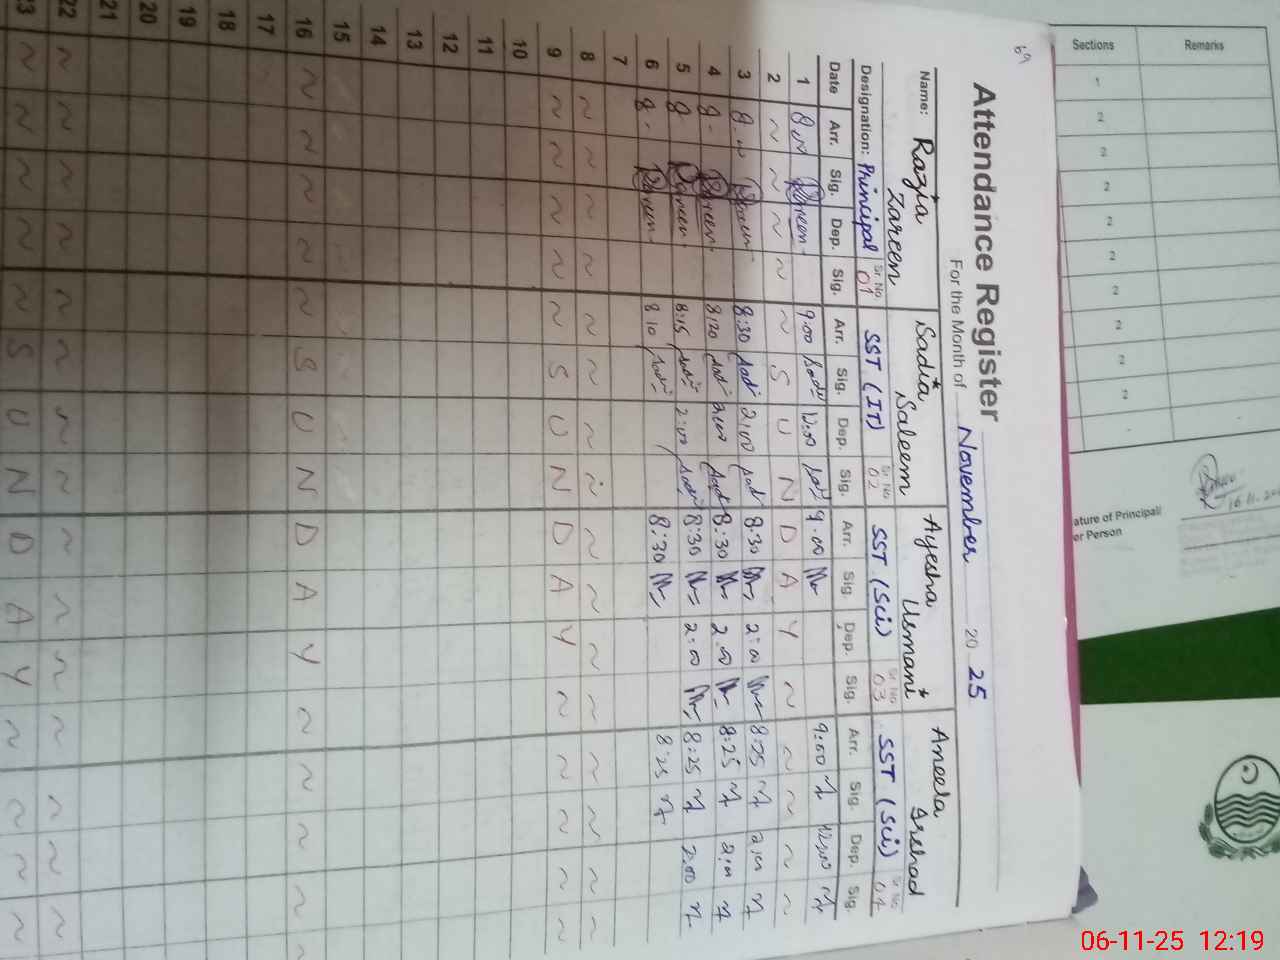 69
Attendance Register
For the Month of November 2025
Name: Razia Zareen Sadia Saleem Ayesha Usmani Aneela Irshad
Designation: Principal Sr No 01 SST (IT) Sr No 02 SST (Sci) Sr No 03 SST (Sci) Sr No 04
Date Arr. Sig. Dep. Sig. Arr. Sig. Dep. Sig. Arr. Sig. Dep. Sig. Arr. Sig. Dep. Sig.
1 9:00 12:00 9:00 9:00 12:00
2 ~ ~ ~ ~ ~ S U N D A Y ~ ~ ~ ~ ~
3 8:30 2:00 8:30 2:00 8:25 2:00
4 8:20 2:00 8:30 2:00 8:25 2:00
5 8:15 2:00 8:30 2:00 8:25 2:00
6 8:10 8:30 8:25
7
8 ~ ~ ~ ~ ~ ~ ~ ~ ~ ~ ~ ~ ~ ~ ~ ~
9 ~ ~ ~ ~ ~ S U N D A Y ~ ~ ~ ~ ~
10
11
12
13
14
15
16 ~ ~ ~ ~ ~ S U N D A Y ~ ~ ~ ~ ~
17
18
19
20
21
22 ~ ~ ~ ~ ~ ~ ~ ~ ~ ~ ~ ~ ~ ~ ~ ~
23 ~ ~ ~ ~ ~ S U N D A Y ~ ~ ~ ~
Sections Remarks
1
2
2
2
2
2
2
2
2
2
ature of Principal/
er Person
06-11-25 12:19